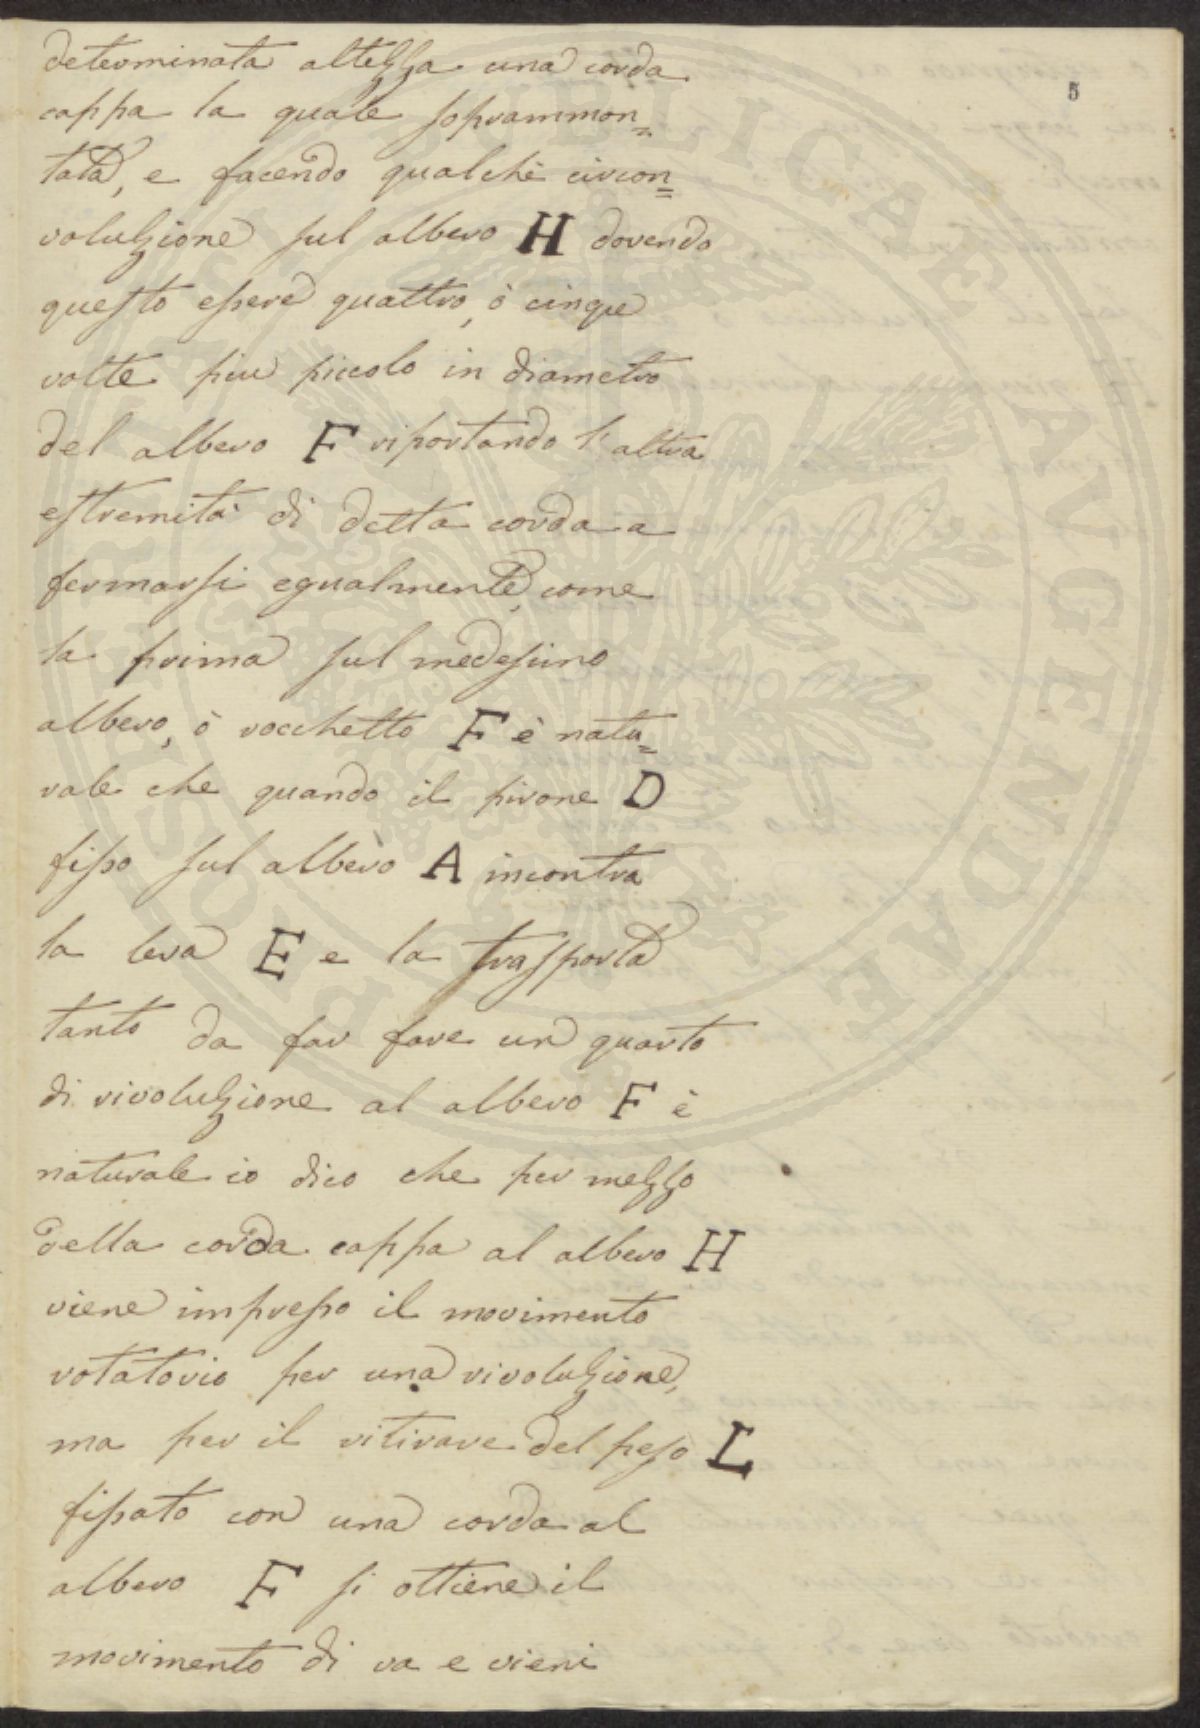 5
determinata altezza una corda
cappa la quale soprammon=
tata, e facendo qualchè circon=
voluzione sul albero H dovendo
questo essere quattro, ò cinque
volte piu piccolo in diametro
del albero F riportando l'altra
estremità di detta corda a
fermarsi egualmente, come
la prima sul medesimo
albero, ò rocchetto F è natu=
rale che quando il pirone D
fisso sul albero A incontra
la leva E e la trasporta
tanto da far fare un quarto
di rivoluzione al albero F è
naturale io dico che per mezzo
della corda cappa al albero H
viene impresso il movimento
rotatorio per una rivoluzione,
ma per il ritirare del peso L
fissato con una corda al
albero F si ottiene il
movimento di va e vieni
PUBLICAE AVGENDAE